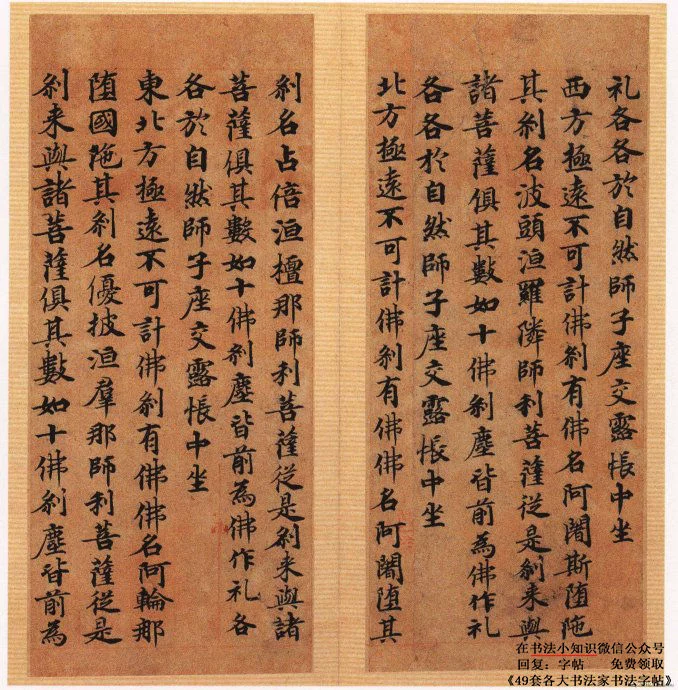 礼各各於自然師子座交露帳中坐
西方極遠不可計佛剎有佛名阿闍斯堕陁
其剎名波頭洹羅隣師利菩薩従是剎来與
諸菩薩俱其數如十佛剎塵皆前為佛作礼
各各於自然師子座交露帳中坐
北方極遠不可計佛剎有佛佛名阿闍堕其
剎名占倍洹檀那師利菩薩従是剎来與諸
菩薩俱其數如十佛剎塵皆前為佛作礼各
各於自然師子座交露帳中坐
東北方極遠不可計佛剎有佛佛名阿輪那
堕國陁其剎名優披洹羣那師利菩薩従是
剎来與諸菩薩俱其數如十佛剎塵皆前為
在书法小知识微信公众号
回复：字帖 免费领取
《49套各大书法家书法字帖》